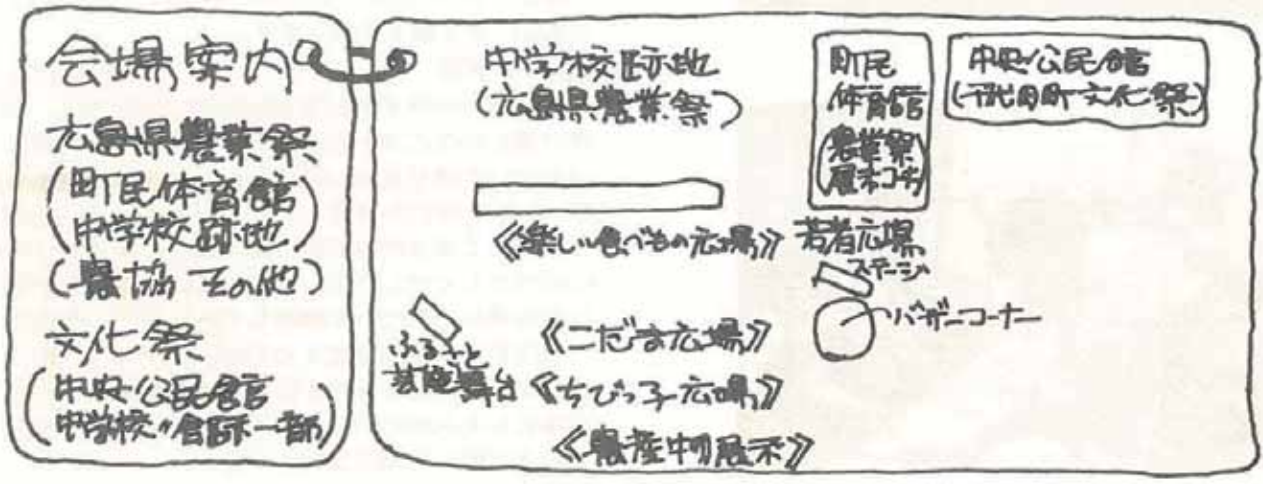 会場案内
広島県農業祭
(町民体育館
中学校跡地)
(農協その他)
文化祭
(中央公民館
中学校〃会館ホ一部)
中学校跡地
(広島県農業祭)
町民
体育館
(農業祭
展示コーナー)
中央公民館
(千代田町文化祭)
《楽しい食べもの広場》
若者広場
ステージ
バザーコーナー
ふるさと
芸能舞台
《こだま広場》
《ちびっ子広場》
《農産物展示》